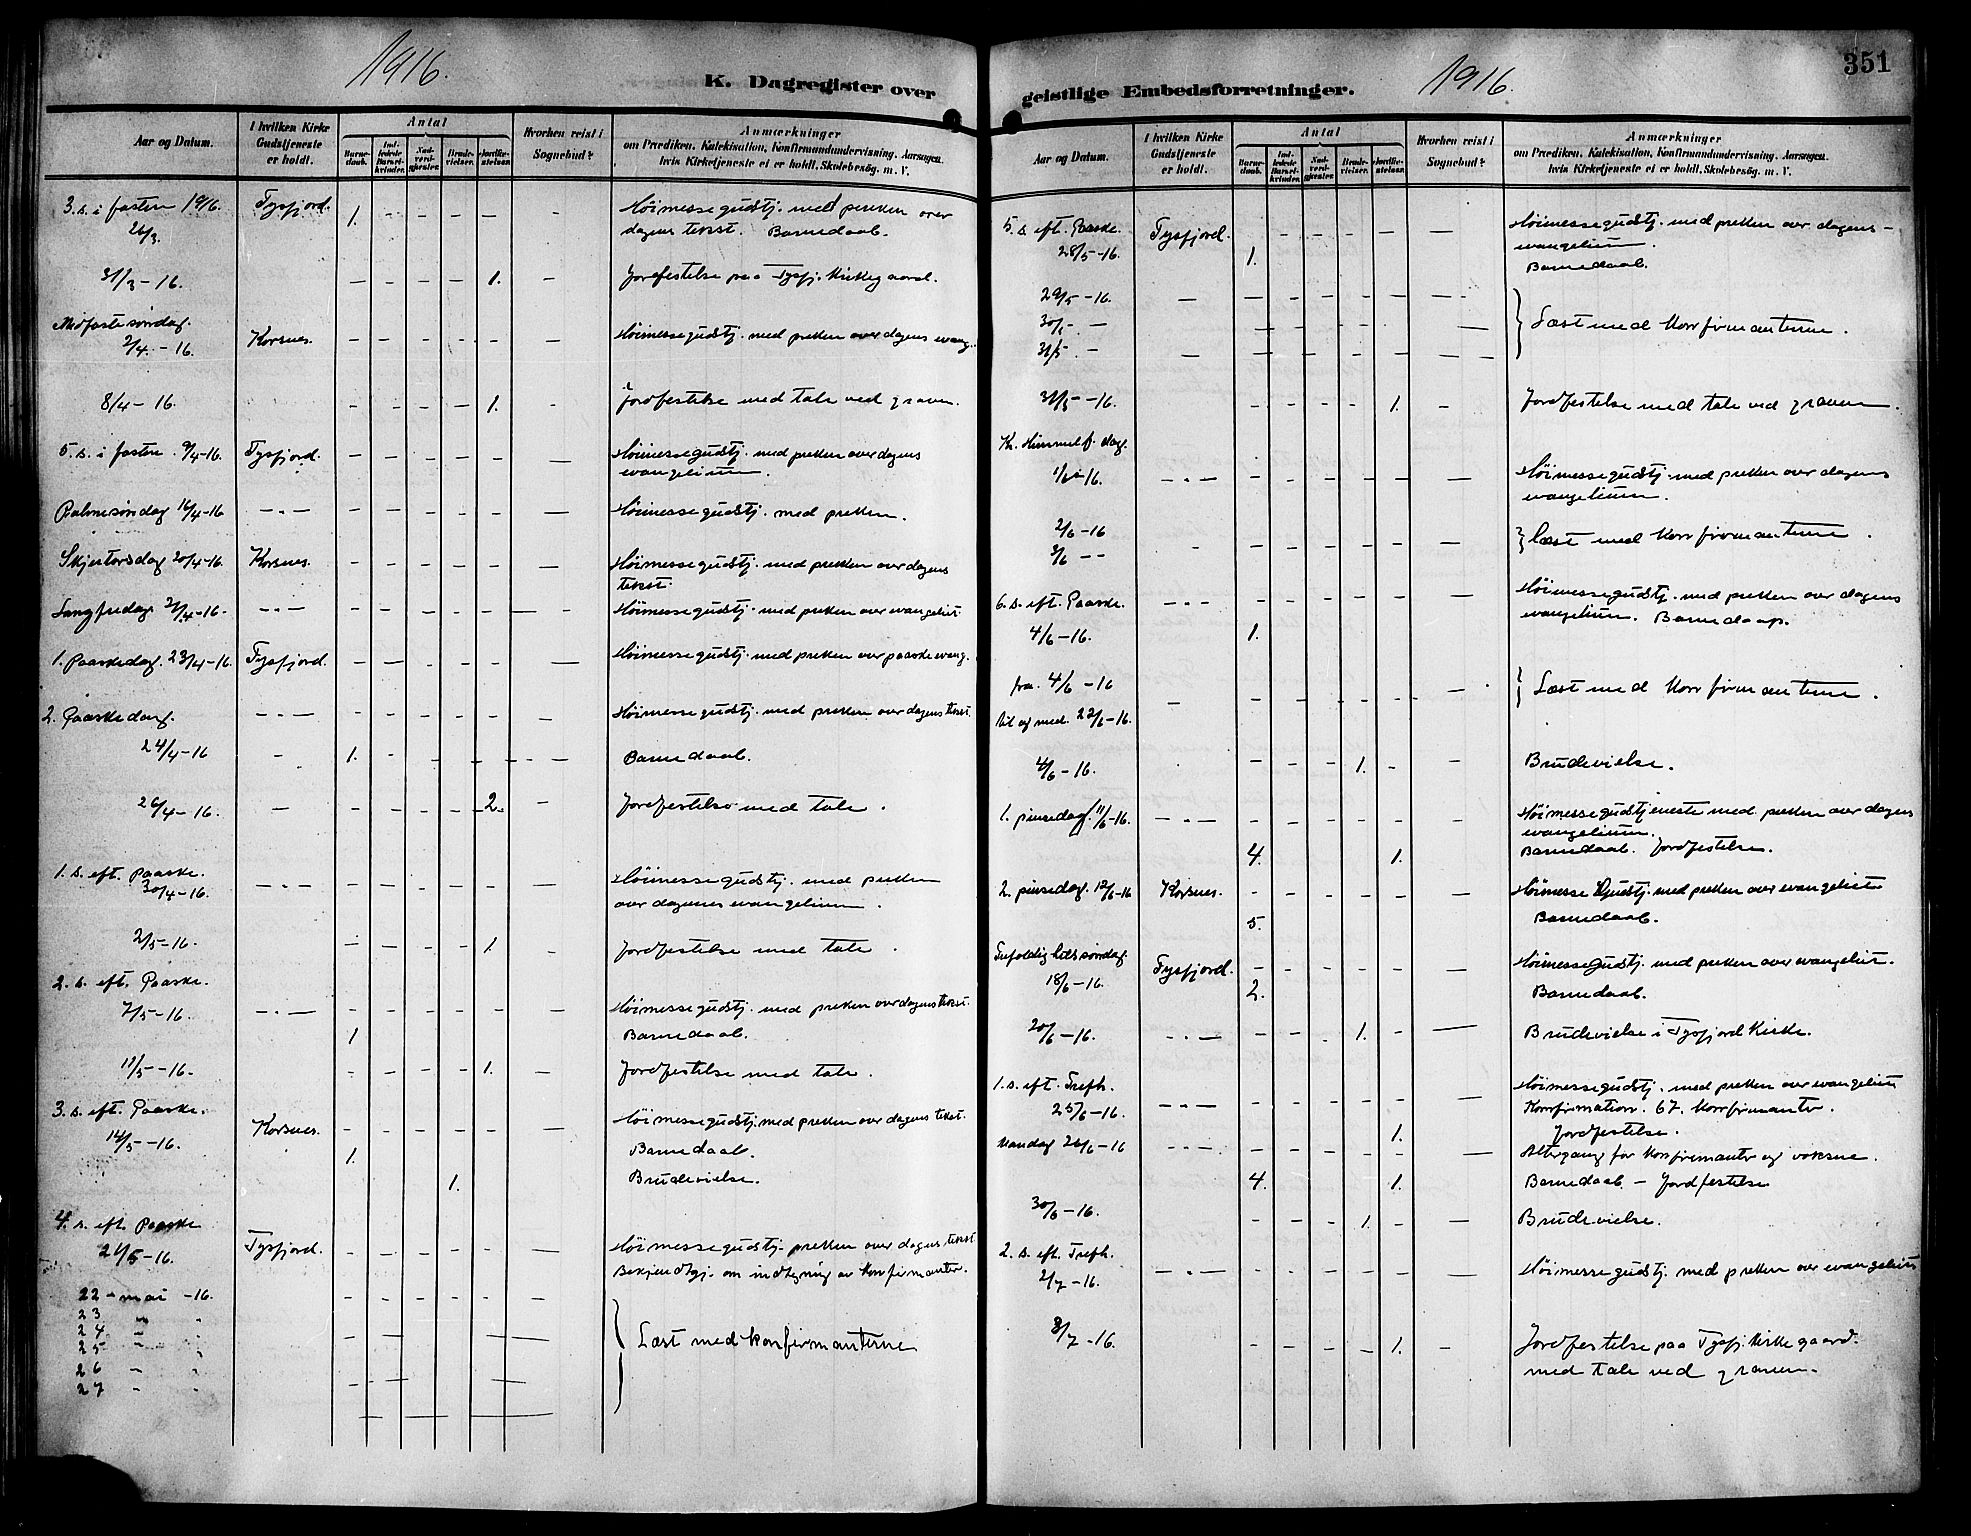 1916.
K. Dagregister over
Aar og Datum.
I hvilken Kirke Gudstjeneste er holdt.
Antal
Barnedaab.
Indledede Barselkvinder.
Nadverdgjester.
Brudevielser.
Jordfæstelser.
Hvorhen reist i Sognebud?
Anmærkninger
om Prædiken, Katekisation, Konfirmandundervisning, Aarsagen, hvis Kirketjeneste ei er holdt, Skolebesøg, m. V.
3. s. i fasten 19/6. Tysfjord. 1. - - - - - Høimessegudstj. med preken over
26/3. dagens tekst. Barnedaab.
31/3 - 16. - - - - 1. - Jordfestelse paa Tysfj. Kirkegaard.
Midfastesøndag.
2/4 - 16. Korsnes. - - - - - - Høimessegudstj. med preken over dagens evang.
8/4 - 16. - - - - 1. Jordfestelse med tale ved graven.
5. s. i fasten. 9/4-16. Tysfjord. - - - - - - Høimessegudstj. med preken over dagens
evangelium.
Palmesøndag 16/4-16 - " - - - - - - - Høimessegudstj. med preken.
Skjertorsdag 20/4-16. Korsnes. - - - - - - Høimessegudstj. med preken over dagens
tekst.
Langfredag 21/4-16. - " - - - - - - - Høimessegudstj. med preken over evangeliet.
1. Paaskedag. 23/4-16 Tysfjord. - - - - - - Høimessegudstj. med preken over paaskeevang.
2. Paaskedag. - " - - - - - - - Høimessegudstj. med preken over dagens tekst.
24/4-16 - 1. - - - - - Barnedaab.
26/4-16. - - - - - 2. - Jordfestelse med tale.
1. s. eft. Paaske.
30/4-16. - " - - - - - - - Høimessegudstj. med preken
over dagenes evangelium.
2/5-16. - - - - 1. Jordfestelse med tale.
2. s. eft. Paaske.
7/5-16. - " - - - - - - - Høimessegudstj. med preken over dagens tekst.
1 Barnedaab.
11/5-16. - - - - 1. - Jordfestelse med tale.
3. s. eft. Paaske.
14/5-16. Korsnes. - - - - - - Høimessegudstj. med preken over dagens tekst.
1. Barnedaab.
1. Brudevielse.
4. s. eft. Paaske
21/5-16. Tysfjord. - - - - - - Høimessegudstj. preken over dagens tekst
Bekjendtgj. om indtegning av konfirmanter.
22 - mai - 16. - - - - - -
23 " "
24 " "
25 " " Læst med konfirmanterne
26 " "
27 " "
1916.
351
geistlige Embedsforretninger.
Aar og Datum.
I hvilken Kirke Gudstjeneste er holdt.
Antal
Barnedaab.
Indledede Barselkvinder.
Nadverdgjester.
Brudevielser.
Jordfæstelser.
Hvorhen reist i Sognebud?
Anmærkninger
om Prædiken, Katekisation, Konfirmandundervisning, Aarsagen, hvis Kirketjeneste ei er holdt, Skolebesøg, m. V.
5. s. eft. Paaske. Tysfjord. - - - - - - Høimessegudstj. med preken over dagens
28/5-16. 1. evangelium.
Barnedaab.
29/5 - 16. - - - - - - -
30/5 - - Læst med konfirmanterne.
31/5 - -
31/5 - 16. - - - - 1. - Jordfestelse med tale ved graven.
Kr. Himmelf. dag.
1/6-16. - " - - - - - - - Høimessegudstj. med preken over dagens
evangelium.
2/6-16
3/6 - - - - - - - - - Læst med konfirmanterne.
6. s. eft. Paaske. - " - - - - - - - Høimessegudstj. med preken over dagens
4/6-16. 1. evangelium. Barnedaap.
fra. 4/6 - 16 Læst med konfirmanterne.
til og med. 22/6-16.
4/6-16. - - - 1. - - Brudevielse.
1. pinsedag. 11/6-16. - " - - - - - - - Høimessegudstjeneste med preken over dagens
evangelium.
4. 1. Barnedaab. Jordfestelse.
2. pinsedag. 12/6-16 Korsnes. - - - - - - Høimesse Gudstj. med preken over evangeliet
5. Barnedaab.
Trefoldighetssøndag. Tysfjord. - - - - - - Høimessegudstj. med preken over evangeliet.
18/6-16. 2. Barnedaab.
20/6-16. - " - - - - 1. - - Brudevielse i Tysfjord Kirke.
1. s. eft. Trefh. Høimessegudstj. med preken over evangeliet
25/6-16. - " - - - - - - - Konfirmation. 67. Konfirmanter.
1. Jordfestelse.
Mandag 26/6-16 - " - - - - - - - Altergang for konfirmanter og voksne.
4. 1. Barnedaab - Jordfestelse
30/6-16. - - - 1. - - Brudevielse.
2. s. eft. Trefh.
2/7-16. - " - - - - - - - Høimessegudstj. med preken over evangeliet
8/7-16. - - - - 1. - Jordfestelse paa Tysfj. Kirkegaard.
med tale ved graven.